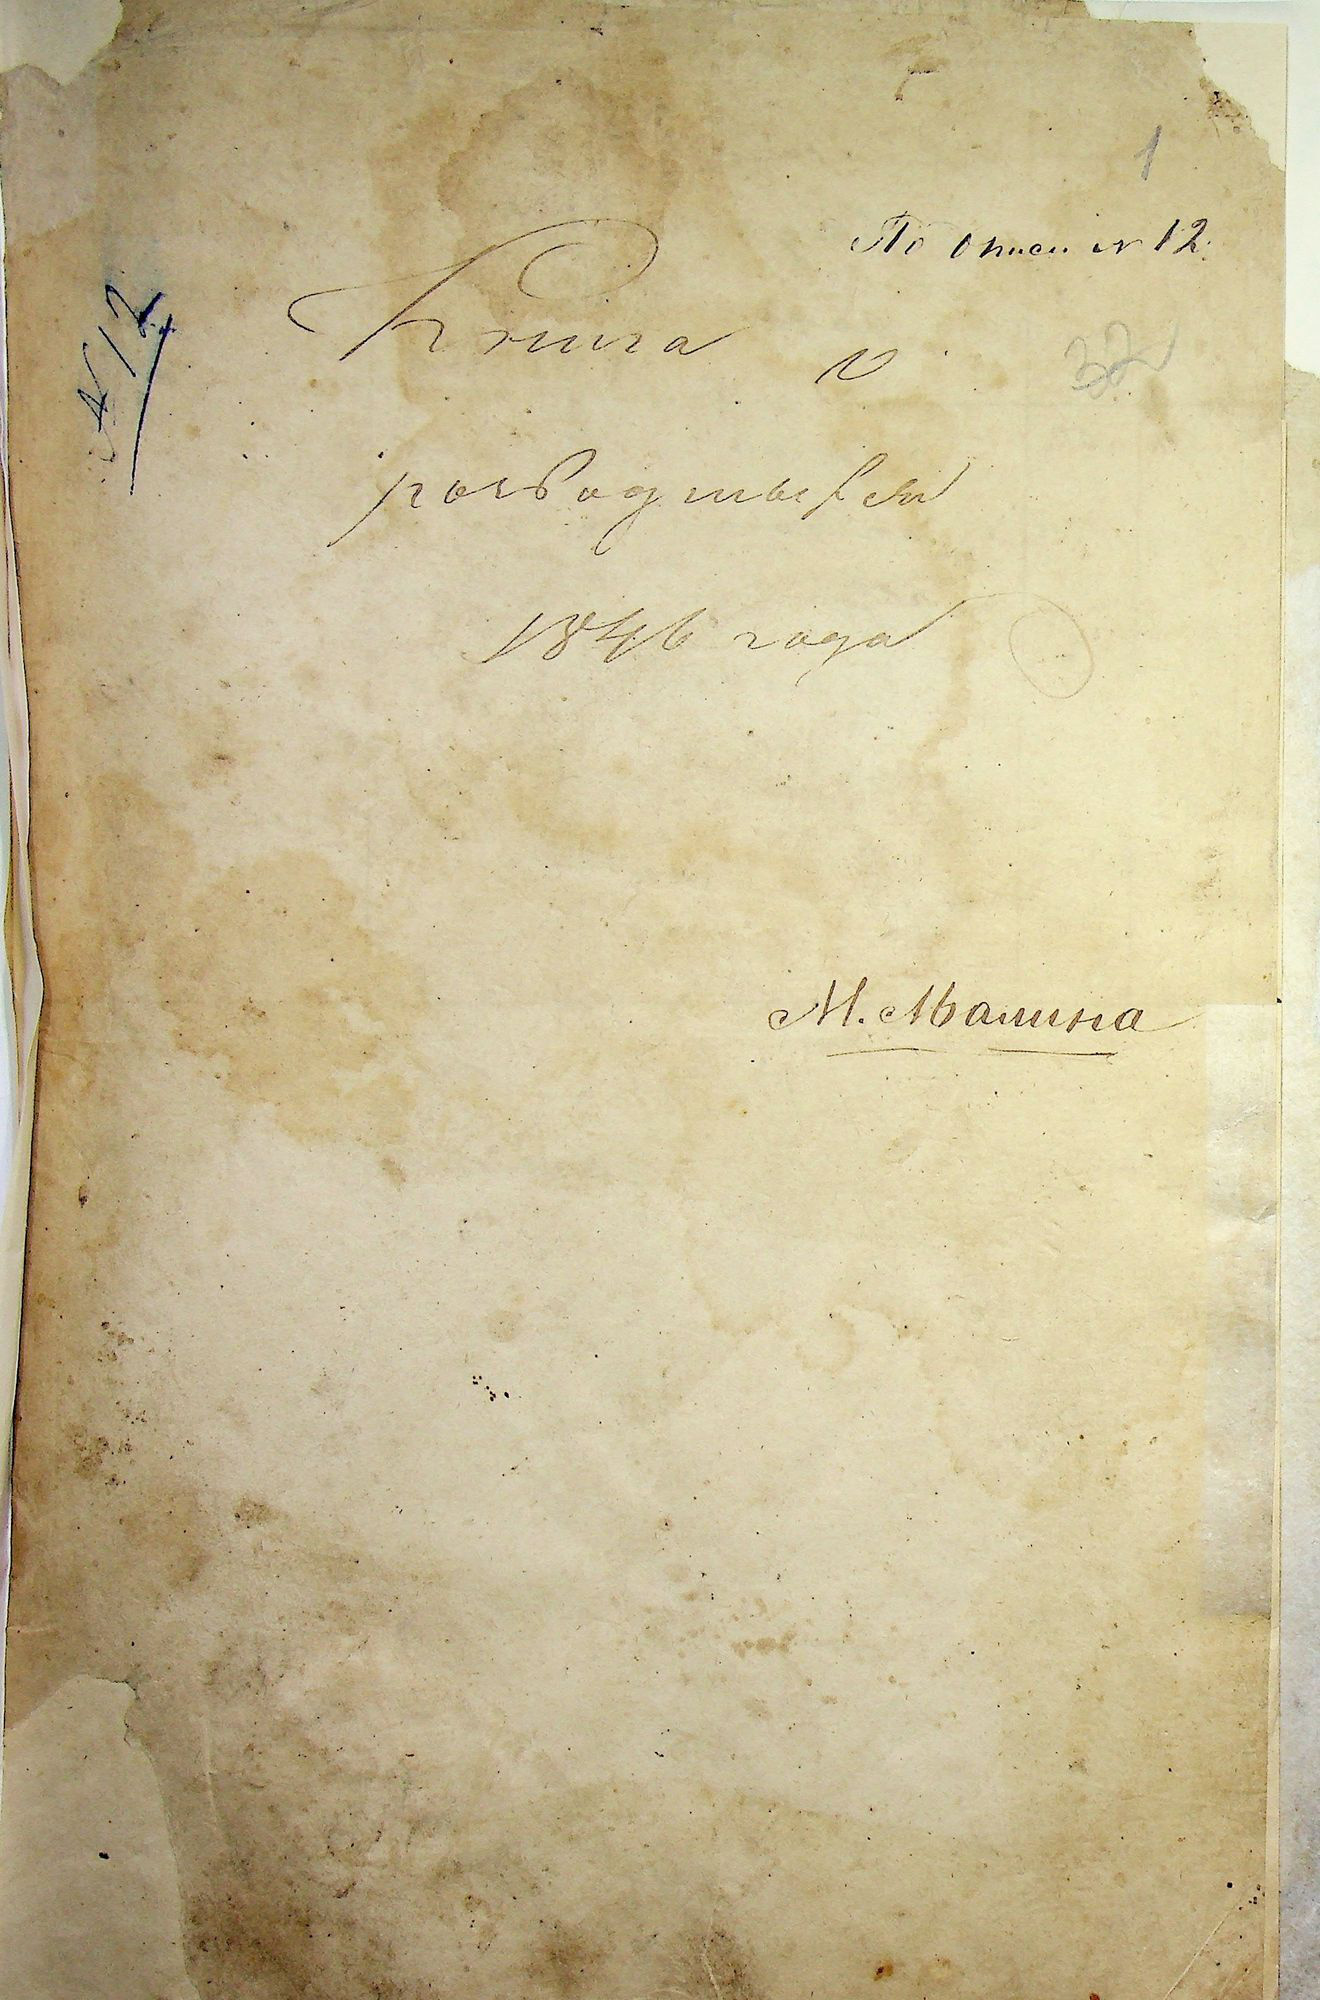 1
По описи № 12.
№ 12
Книга о
32
родившихся
1846 года
М. Малина